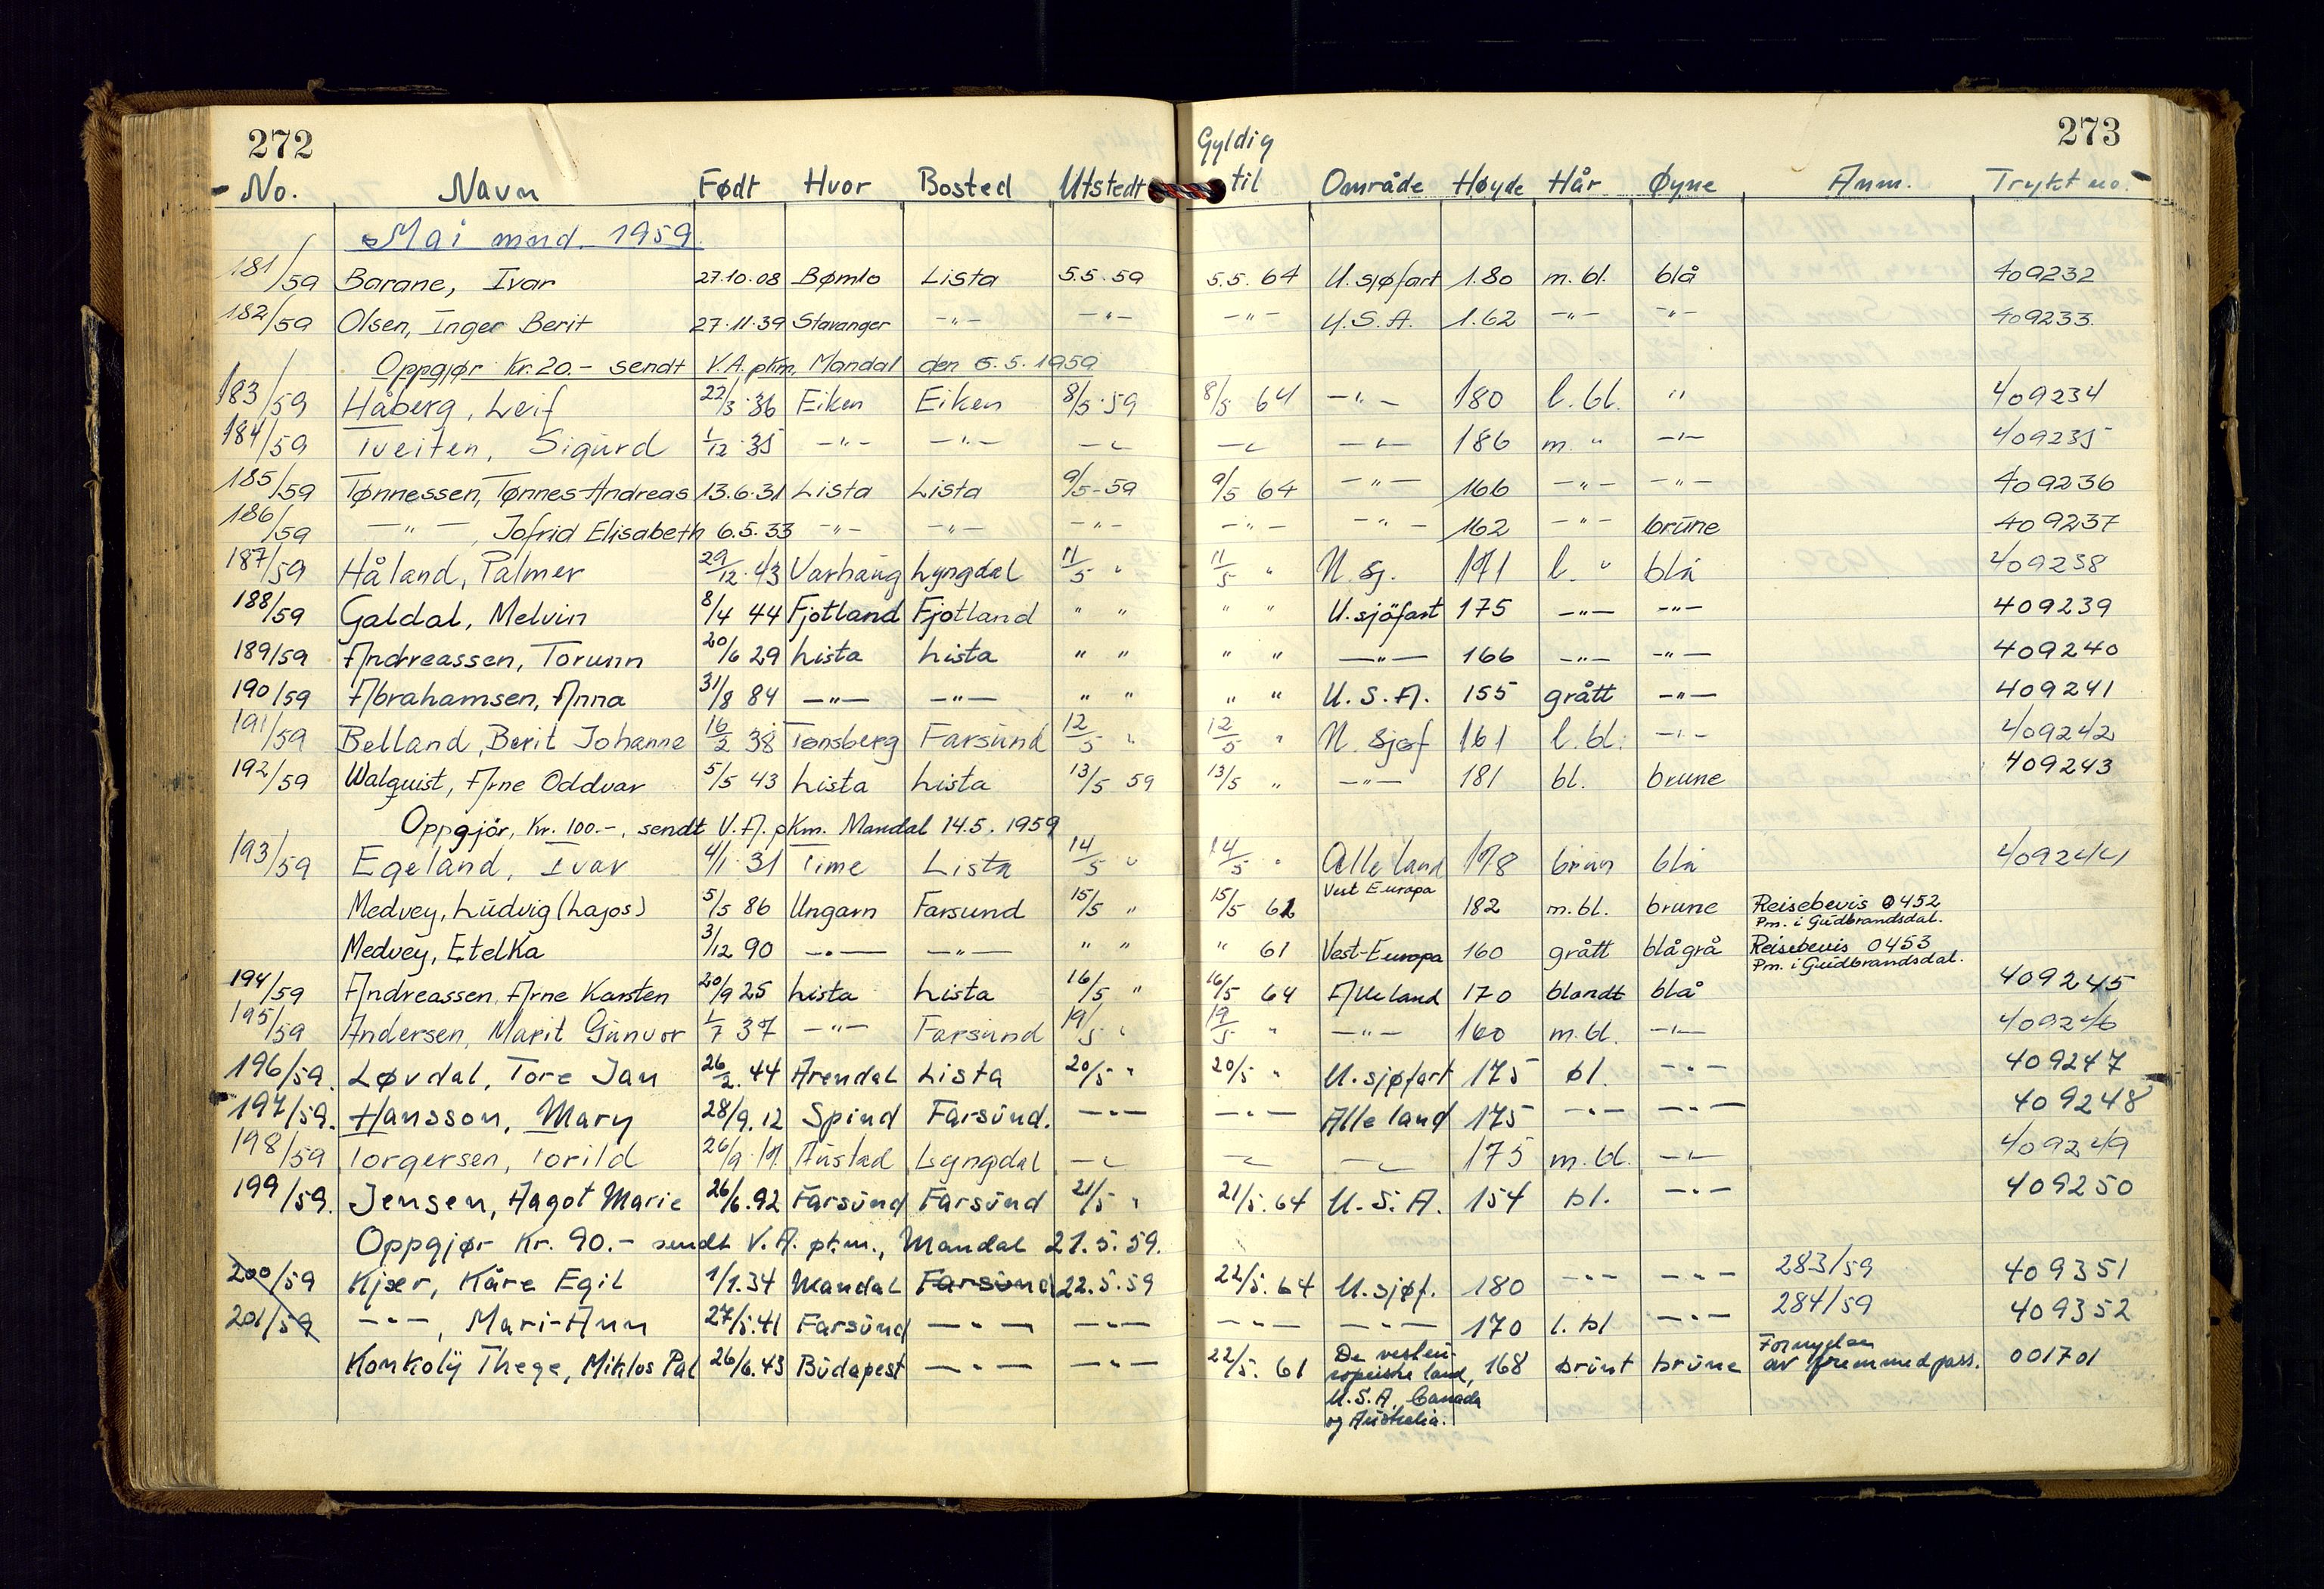 272
273
Gyldig
No. Navn Født Hvor Bosted Utstedt til Område Høyde Hår Øyne Anm. Trykt no.
Mai mnd. 1959
181/59 Barane, Ivar 27.10.08 Bømlo Lista 5.5.59 5.5.64 U.sjøfart 1.80 m.bl. blå 409232
182/59 Olsen, Inger Berit 27.11.39 Stavanger -"- -"- -"- U.S.A. 1.62 -"- -"- 409233
Oppgjør Kr. 20.- sendt V.A. pkm, Mandal den 5.5.1959
183/59 Håberg, Leif 22/3.36 Eiken Eiken 8/5.59 8/5 64 -"- 180 l.bl. " 409234
184/59 Tveiten, Sigurd 1/12.35 -"- -"- -"- -"- -"- 186 m. " -"- 409235
185/59 Tønnessen, Tønnes Andreas 13.6.31 Lista Lista 9/5-59 9/5 64 -"- 166 -"- -"- 409236
186/59 -"-, Jofrid Elisabeth 6.5.33 -"- -"- -"- -"- -"- 162 -"- brune 409237
187/59 Håland, Palmer 29/12.43 Varhaug Lyngdal 11/5 " 11/5 " U.sj. 171 l. " blå 409238
188/59 Galdal, Melvin 8/4 44 Fjotland Fjotland " " " " U.sjöfart 175 -"- -"- 409239
189/59 Andreassen, Torunn 20/6 29 Lista Lista " " " " -"- 166 -"- -"- 409240
190/59 Abrahamsen, Anna 31/8 84 -"- -"- " " " " U.S.A. 155 grått -"- 409241
191/59 Belland, Berit Johanne 16/2 38 Tønsberg Farsund 12/5 " 12/5 " U. sjøf 161 l.bl. -"- 409242
192/59 Walquist, Arne Oddvar 5/5 43 Lista Lista 13/5 59 13/5 " -"- 181 bl. brune 409243
Oppgjör, Kr. 100.-, sendt V.A. pkm. Mandal 14.5.1959
193/59 Egeland, Ivar 4/1.31 Time Lista 14/5 " 14/5 " Alle land 178 brun blå 409244
Medvey, Ludvig (Lajos) 5/5 86 Ungarn Farsund 15/5 " 15/5 61 Vest Europa 182 m.bl. brune Reisebevis 0452
Pm. i Gudbrandsdal.
Medvey, Etelka 3/12 90 -"- -"- " " " 61 Vest-Europa 160 grått blågrå Reisebevis 0453
Pm. i Gudbrandsdal.
194/59 Andreassen, Arne Karsten 20/9 25 Lista Lista 16/5 " 16/5 64 Alle land 170 blondt blå 409245
195/59 Andersen, Marit Gunvor 1/7 37 -"- Farsund 19/5 " 19/5 " -"- 160 m.bl. -"- 409246
196/59. Løvdal, Tore Jan 26/2.44 Arendal Lista 20/5 " 20/5 " U.sjøfart 175 bl. -"- 409247
197/59. Hansson, Mary 28/9.12 Spind Farsund. -"- -"- Alle land 175 -"- -"- 409248
198/59 Torgersen, Torild 26/9.17 Austad Lyngdal -"- -"- -"- 175 m.bl. -"- 409249
199/59. Jensen, Aagot Marie 26/6.92 Farsund Farsund 21/5 " 21/5.64 U.S.A. 154 bl. -"- 409250
Oppgjør Kr. 90.- sendt V.A. pkm., Mandal 21.5.59.
200/59 Kjær, Kåre Egil 1/1.34 Mandal Farsund 22.5.59 22/5.64 U.sjøf. 180 -"- -"- 283/59 409351
201/59 -"-, Mari-Ann 27/5.41 Farsund -"- -"- -"- -"- 170 l.bl -"- 284/59 409352
Konkolÿ Thege, Miklos Pal 26/6.43 Budapest -"- -"- 22/5. 61 De vesteu- 168 brunt brune Fornyelse 001701
ropeiske land, av fremmedpass.
U.S.A. Canada
og Australia.